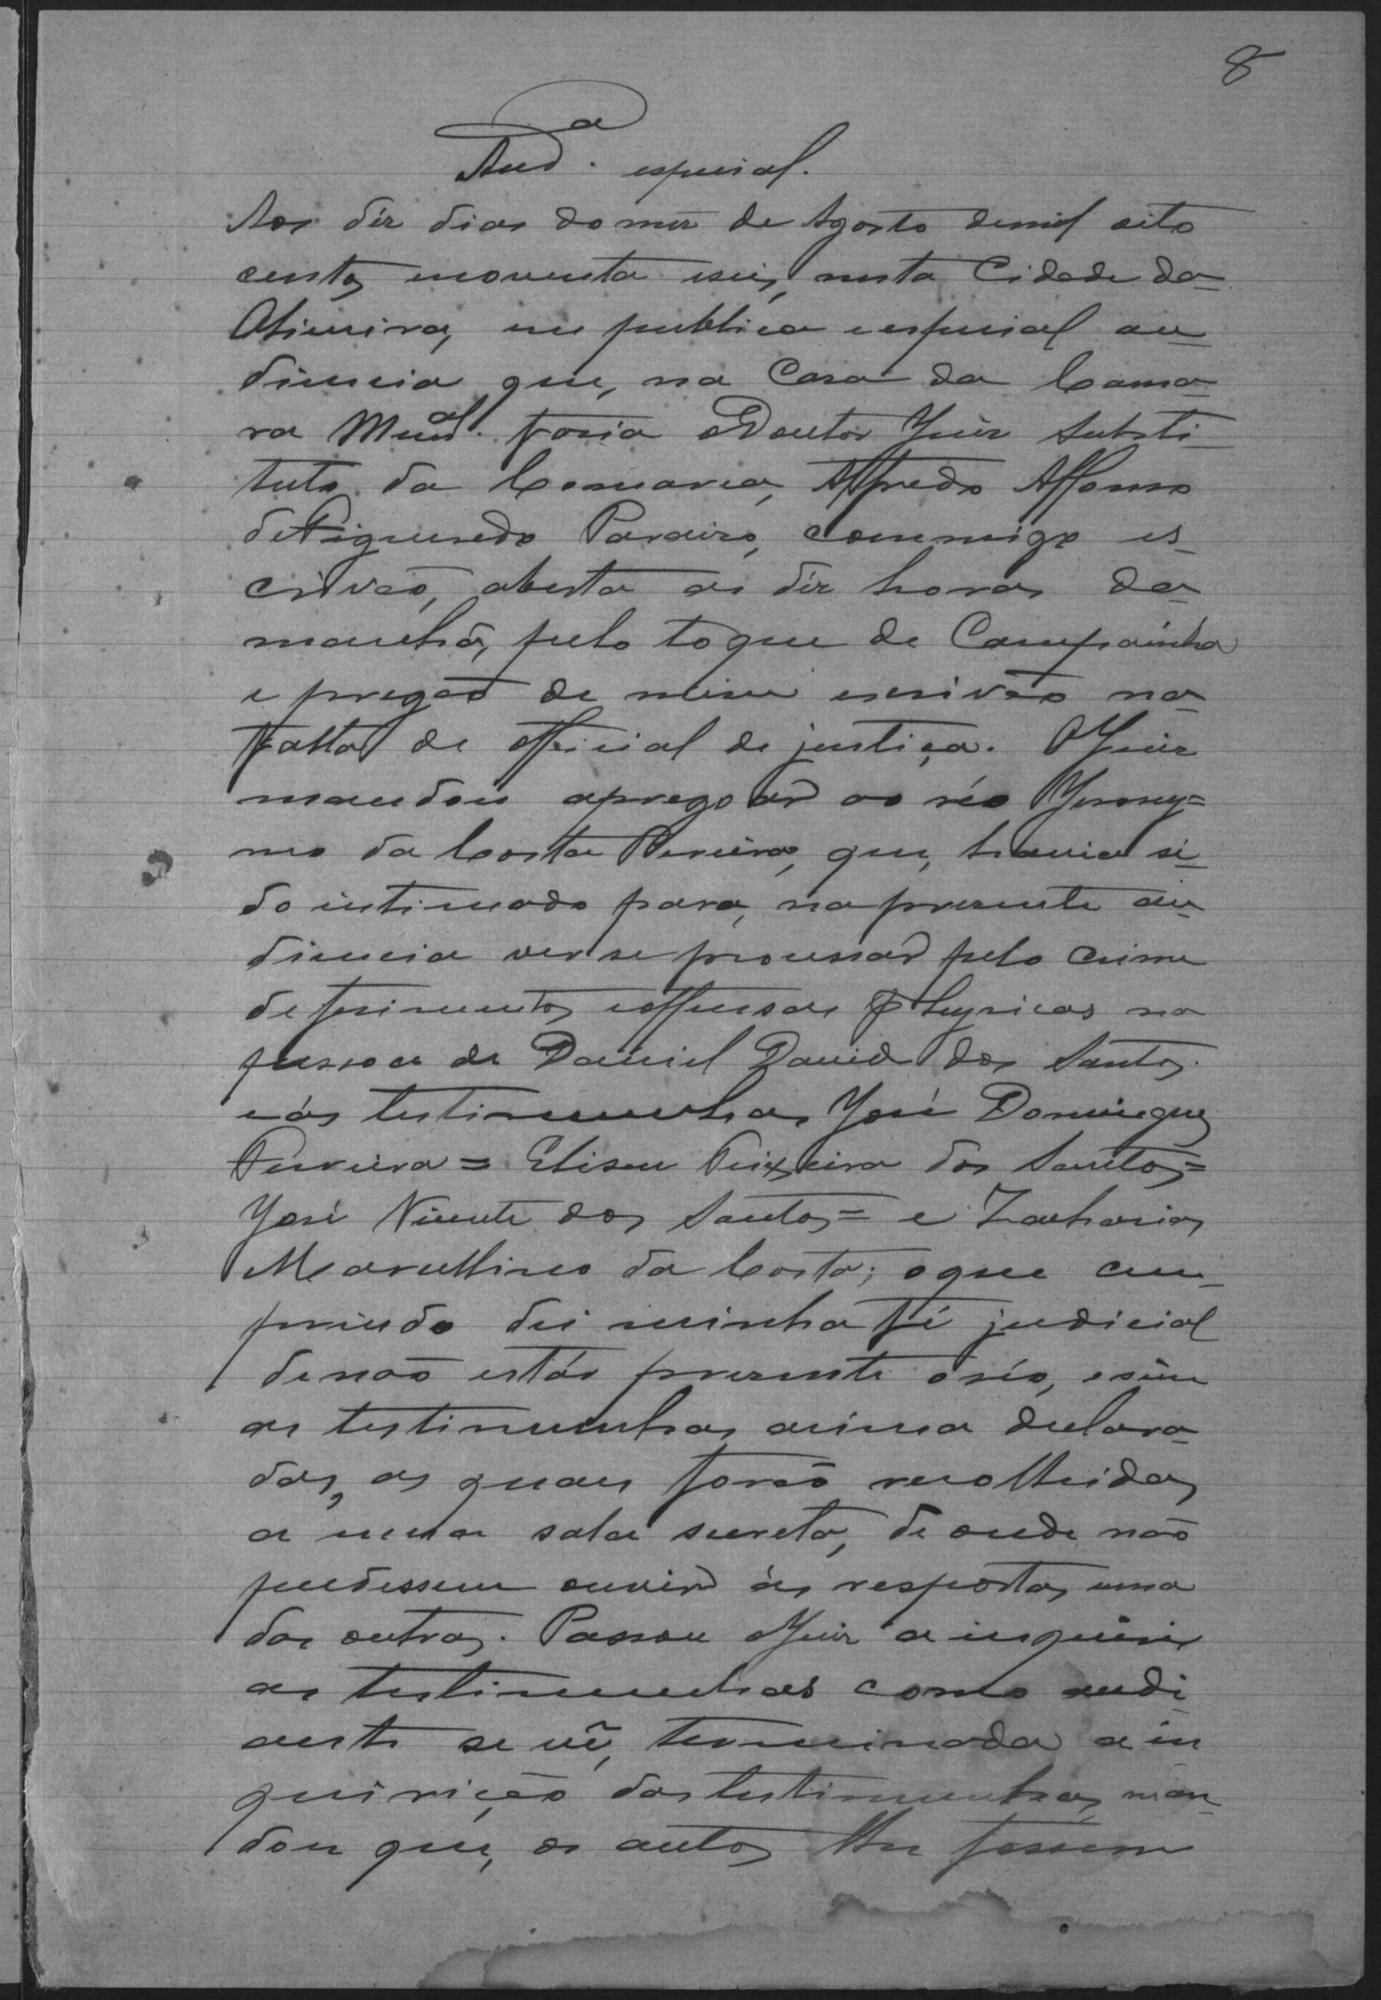 8
Aud.ª especial.
Aos dez dias do mez de Agosto demil oito
centos enoventa eseis, nesta Cidade da
em publica e especial au-
diencia que, na Casa da Cama-
ra Mun.al fasia o Doutor Juiz Substi-
tuto da Comarca, Alfredo Affonso
deFigueredo commigo es-
crivão, aberta as déz horas da
manhã, pelo toque de Campainha
e pregão de mim escrivão na
falta de official de justiça. O Juiz
mandou apregoar ao réo Jerony=
mo da Costa Pereira, que, havia si-
do intimado para, na presente au-
diencia ver se processar pelo crime
de ferimentos e offensas physicas na
pessoa de Daniel David dos Santos.
e ás testimunhas José Domingues
Pereira = Eliseu Teixeira dos Santos=
José Vicente dos Santos= e Zacharias
Marcellino da Costa; o que cum-
prindo dei minha fé judicial
denão estár presente o réo, e sim
as testimunhas acima declara-
das, as quaes forão recolhidas
a uma sala secreta, de onde não
pudessem ouvir ás respostas uma
das outras. Passou o Juiz a inquirir
as testimunhas como audi
ante se vê, terminada a in
quirição das testimunhas, man-
dou que, os autos lhe fossem